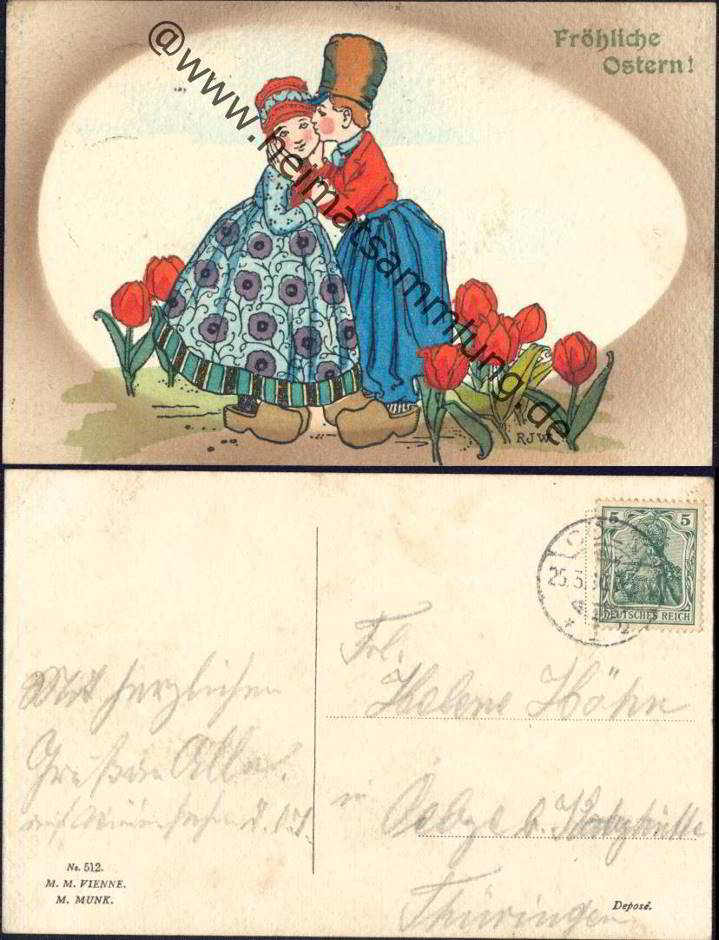 Fröhliche
Ostern!
@www.heimatsammlung.de
RJW
5 5
DEUTSCHES REICH
25.3.
Frl.
Helene Höhn
Mit herzlichen
Grüßen
in
b. Katzhütte
Thüringen
No. 512.
M. M. VIENNE.
M. MUNK.
Deposé.